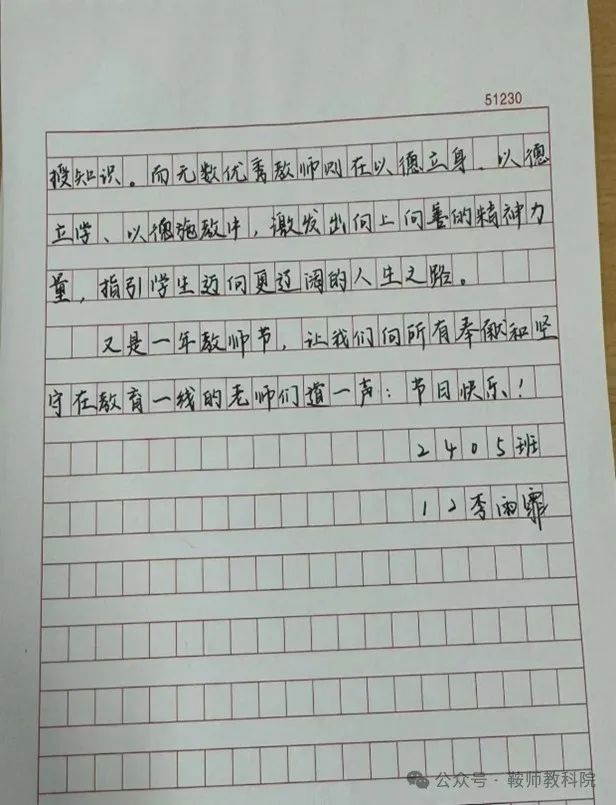 51230
授知识。而无数优秀教师则在以德立身、以德
立学、以德施教中，激发出向上向善的精神力
量，指引学生迈向更迈阔的人生之路。
又是一年教师节，让我们向所有奉献和坚
守在教育一线的老师们道一声：节日快乐！
2405班
12李雨霏
公众号·鞍师教科院